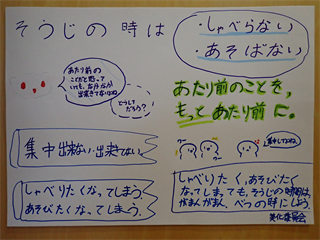 そうじの時は
・しゃべらない
・あそばない
あたり前の
ことだと思って
いても、なかなか
出来てないね
どうして
だろう?
あたり前のことを、
もっと あたり前 に。
集中しようね。
集中出来ない・出来てない。
しゃべりたくなってしまう。
あそびたくなってしまう。
しゃべりたく、あそびたく
なってしまっても、そうじの時間は、
がまんがまん。べつの時にしよう。
美化委員会